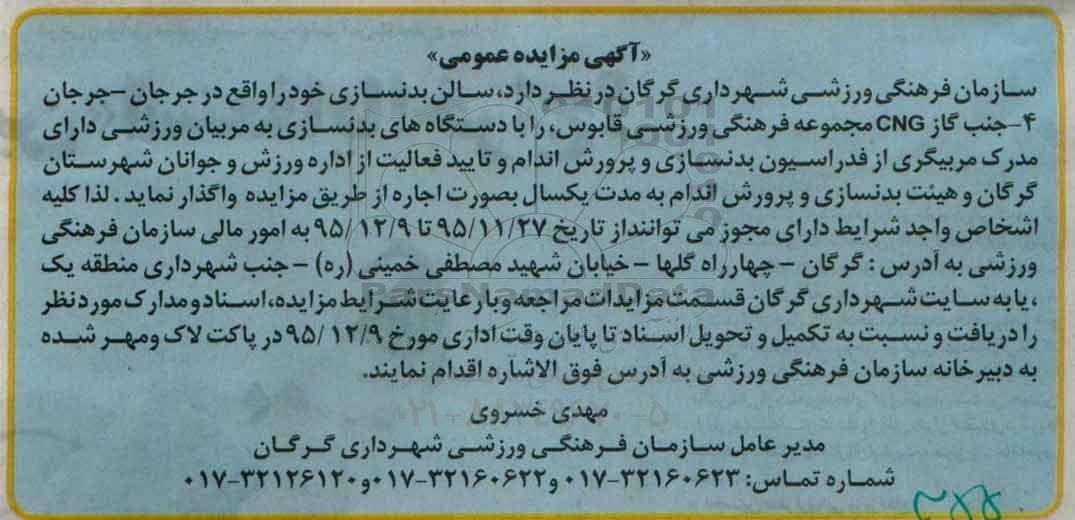 «آگهی مزایده عمومی»
سازمان فرهنگی ورزشی شهرداری گرگان در نظر دارد، سالن بدنسازی خود را واقع در جرجان -جرجان
۴-جنب گاز CNG مجموعه فرهنگی ورزشی قابوس، را با دستگاه های بدنسازی به مربیان ورزشی دارای
مدرک مربیگری از فدراسیون بدنسازی و پرورش اندام و تایید فعالیت از اداره ورزش و جوانان شهرستان
گرگان و هیئت بدنسازی و پرورش اندام به مدت یکسال بصورت اجاره از طریق مزایده واگذار نماید. لذا کلیه
اشخاص واجد شرایط دارای مجوز می توانند از تاریخ ۹۵/۱۱/۲۷ تا ۹۵/۱۲/۹ به امور مالی سازمان فرهنگی
ورزشی به آدرس : گرگان - چهارراه گلها - خیابان شهید مصطفی خمینی (ره) - جنب شهرداری منطقه یک
، یا به سایت شهرداری گرگان قسمت مزایدات مراجعه و با رعایت شرایط مزایده، اسناد و مدارک مورد نظر
را دریافت و نسبت به تکمیل و تحویل اسناد تا پایان وقت اداری مورخ ۹۵/۱۲/۹ در پاکت لاک و مهر شده
به دبیرخانه سازمان فرهنگی ورزشی به آدرس فوق الاشاره اقدام نمایند.
مهدی خسروی
مدیر عامل سازمان فرهنگی ورزشی شهرداری گرگان
شماره تماس: ۳۲۱۶۰۶۲۳-۰۱۷ و ۳۲۱۶۰۶۲۲-۰۱۷ و ۳۲۱۲۶۱۲۰-۰۱۷
ParsNamadData